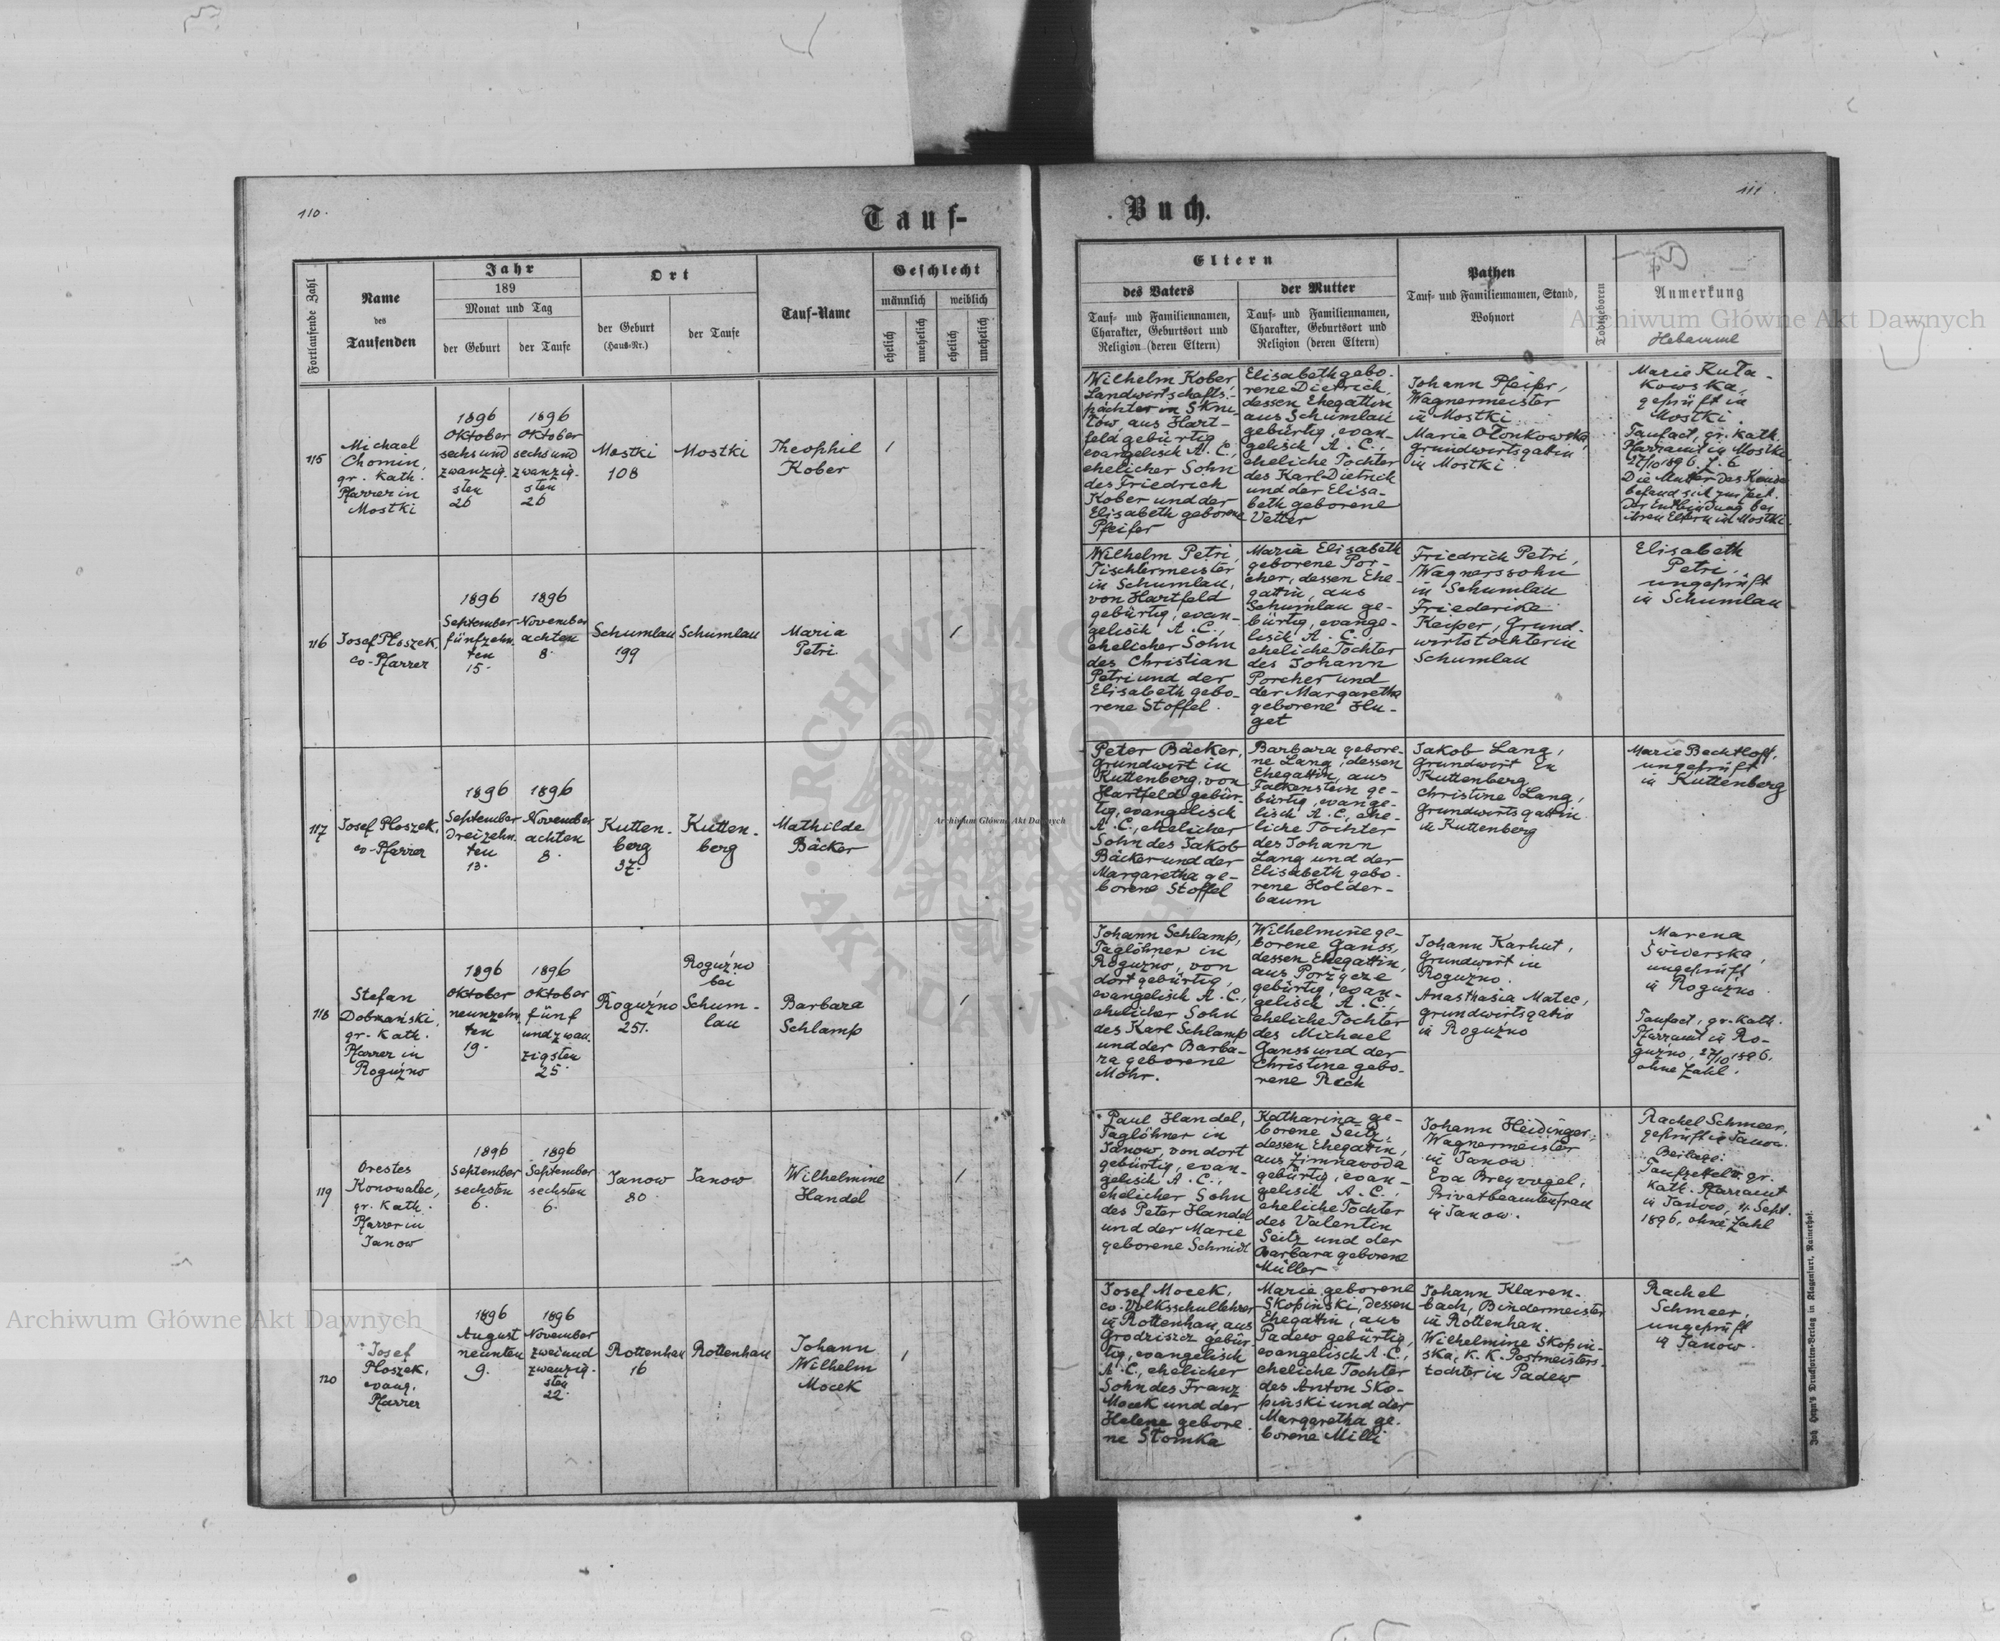 110.
Tauf-
Fortlaufende Zahl
Name
des
Taufenden
Jahr
189
Monat und Tag
der Geburt
der Taufe
Ort
der Geburt
(Haus-Nr.)
der Taufe
Tauf-Name
Geschlecht
männlich
weiblich
ehelich
unehelich
ehelich
unehelich
115
Michael
Chomin,
gr. Kath.
Pfarrer in
Mostki
1896
Oktober
sechs und
zwanzig-
sten
26
1896
Oktober
sechs und
zwanzig-
sten
26
Mostki
108
Mostki
Theophil
Kober
1
116
Josef Ploszek,
ev-Pfarrer
1896
September
fünfzehn
ten
15.
1896
November
achten
8.
Schumlau
199
Schumlau
Maria
Petri
1
117
Josef Ploszek,
ev-Pfarrer
1896
September
dreizehn
ten
13.
1896
November
achten
8.
Kutten-
berg
37.
Kutten-
berg
Mathilde
Bäcker
118
Stefan
Dobrzański,
gr. Kath.
Pfarrer in
Roguźno
1896
Oktober
neunzehn
ten
19.
1896
Oktober
fünf
und zwan-
zigsten
25.
Roguźno
251.
Roguźno
bei
Schum-
lau
Barbara
Schlamp
1
119
Orestes
Konowalec,
gr. Kath.
Pfarrer in
Janow
1896
September
sechsten
6.
1896
September
sechsten
6.
Janow
80
Janow
Wilhelmine
Handel
1
120
Josef
Ploszek,
evang.
Pfarrer
1896
August
neunten
9.
1896
November
zwei und
zwanzig-
sten
22.
Rottenhan
16
Rottenhan
Johann
Wilhelm
Mocek
1
Buch.
111
Eltern
des Vaters
Tauf- und Familiennamen,
Charakter, Geburtsort und
Religion (deren Eltern)
der Mutter
Tauf- und Familiennamen,
Charakter, Geburtsort und
Religion (deren Eltern)
Pathen
Tauf- und Familiennamen, Stand,
Wohnort
Todtgeboren
Anmerkung
Hebamme
Wilhelm Kober,
Landwirtschafts-
pächter in Skni-
łow, aus Hart-
feld gebürtig,
evangelisch A. C.,
ehelicher Sohn
des Friedrich
Kober und der
Elisabeth geborene
Pfeifer
Elisabeth gebo-
rene Dietrich,
dessen Ehegattin
aus Schumlau
gebürtig, evan-
gelisch A. C.,
eheliche Tochter
des Karl Dietrich
und der Elisa-
beth geborene
Vetter
Johann Pfeifer,
Wagnermeister
in Mostki
Marie Ołonkowska,
Grundwirtsgattin
in Mostki
Marie Kuła-
kowska,
geprüft in
Mostki.
Taufact, gr. kath.
Pfarramt in Mostki
27/10 1896, Z. 6
Die Mutter des Kindes
befand sich zur Zeit
der Entbindung bei
ihren Eltern in Mostki.
Wilhelm Petri,
Tischlermeister
in Schumlau,
von Hartfeld
gebürtig, evan-
gelisch A. C.,
ehelicher Sohn
des Christian
Petri und der
Elisabeth gebo-
rene Stoffel.
Maria Elisabeth
geborene Por-
cher, dessen Ehe-
gattin, aus
Schumlau ge-
bürtig, evange-
lisch A. C.,
eheliche Tochter
des Johann
Porcher und
der Margaretha
geborene Hu-
get
Friedrich Petri,
Wagnerssohn
in Schumlau
Friederike
Keiper, Grund-
wirtstochter in
Schumlau
Elisabeth
Petri,
ungeprüft
in Schumlau
Peter Bäcker,
Grundwirt in
Kuttenberg, von
Hartfeld gebür-
tig, evangelisch
A. C., ehelicher
Sohn des Jakob
Bäcker und der
Margaretha ge-
borene Stoffel
Barbara gebore-
ne Lang, dessen
Ehegattin, aus
Falkenstein ge-
bürtig, evange-
lisch A. C., ehe-
liche Tochter
des Johann
Lang und der
Elisabeth gebo-
rene Holder-
baum
Jakob Lang,
Grundwirt in
Kuttenberg
Christine Lang,
Grundwirtsgattin
in Kuttenberg
Marie Bechtloff,
ungeprüft
in Kuttenberg
Johann Schlamp,
Taglöhner in
Roguźno, von
dort gebürtig,
evangelisch A. C.,
ehelicher Sohn
des Karl Schlamp
und der Barba-
ra geborene
Mohr.
Wilhelmine ge-
borene Ganss,
dessen Ehegattin,
aus Porzgeze
gebürtig, evan-
gelisch, A. C.
eheliche Tochter
des Michael
Ganss und der
Christine gebo-
rene Reck
Johann Karhut,
Grundwirt in
Roguźno.
Anasthasia Matec,
Grundwirtsgattin
in Roguźno
Marena
Świderska,
ungeprüft
in Roguźno.
Taufact, gr. Kath.
Pfarramt in Ro-
guźno, 27/10 1896.
ohne Zahl.
Paul Handel,
Taglöhner in
Janow, von dort
gebürtig, evan-
gelisch A. C.,
ehelicher Sohn
des Peter Handel
und der Marie
geborene Schmidt
Katharina ge-
borene Seitz,
dessen Ehegattin,
aus Zimnawoda
gebürtig, evan-
gelisch A. C.,
eheliche Tochter
des Valentin
Seitz und der
Barbara geborene
Müller
Johann Heidinger,
Wagnermeister
in Janow
Eva Breyvogel,
Privatbeamtenfrau
in Janow.
Rachel Schmeer,
geprüft in Janow.
Beilage:
Taufzettel v. gr.
kath. Pfarramt
in Janow, 11. Sept.
1896, ohne Zahl
Josef Mocek,
ev. Volksschullehrer
in Rottenhan, aus
Grodziszcz gebür-
tig, evangelisch
A. C., ehelicher
Sohn des Franz
Mocek und der
Helene gebore-
ne Słomka
Marie geborene
Skopinski, dessen
Ehegattin, aus
Padew gebürtig,
evangelisch A. C.,
eheliche Tochter
des Anton Sko-
pinski und der
Margaretha ge-
borene Milli
Johann Klaren-
bach, Bindermeister
in Rottenhan.
Wilhelmine Skopin-
ska, K. K. Postmeisters-
tochter in Padew
Rachel
Schmeer,
ungeprüft
in Janow.
Joh. Heyn's Drucksorten-Verlag in Klagenfurt, Rainerhof.
Archiwum Główne Akt Dawnych
Archiwum Główne Akt Dawnych
Archiwum Główne Akt Dawnych